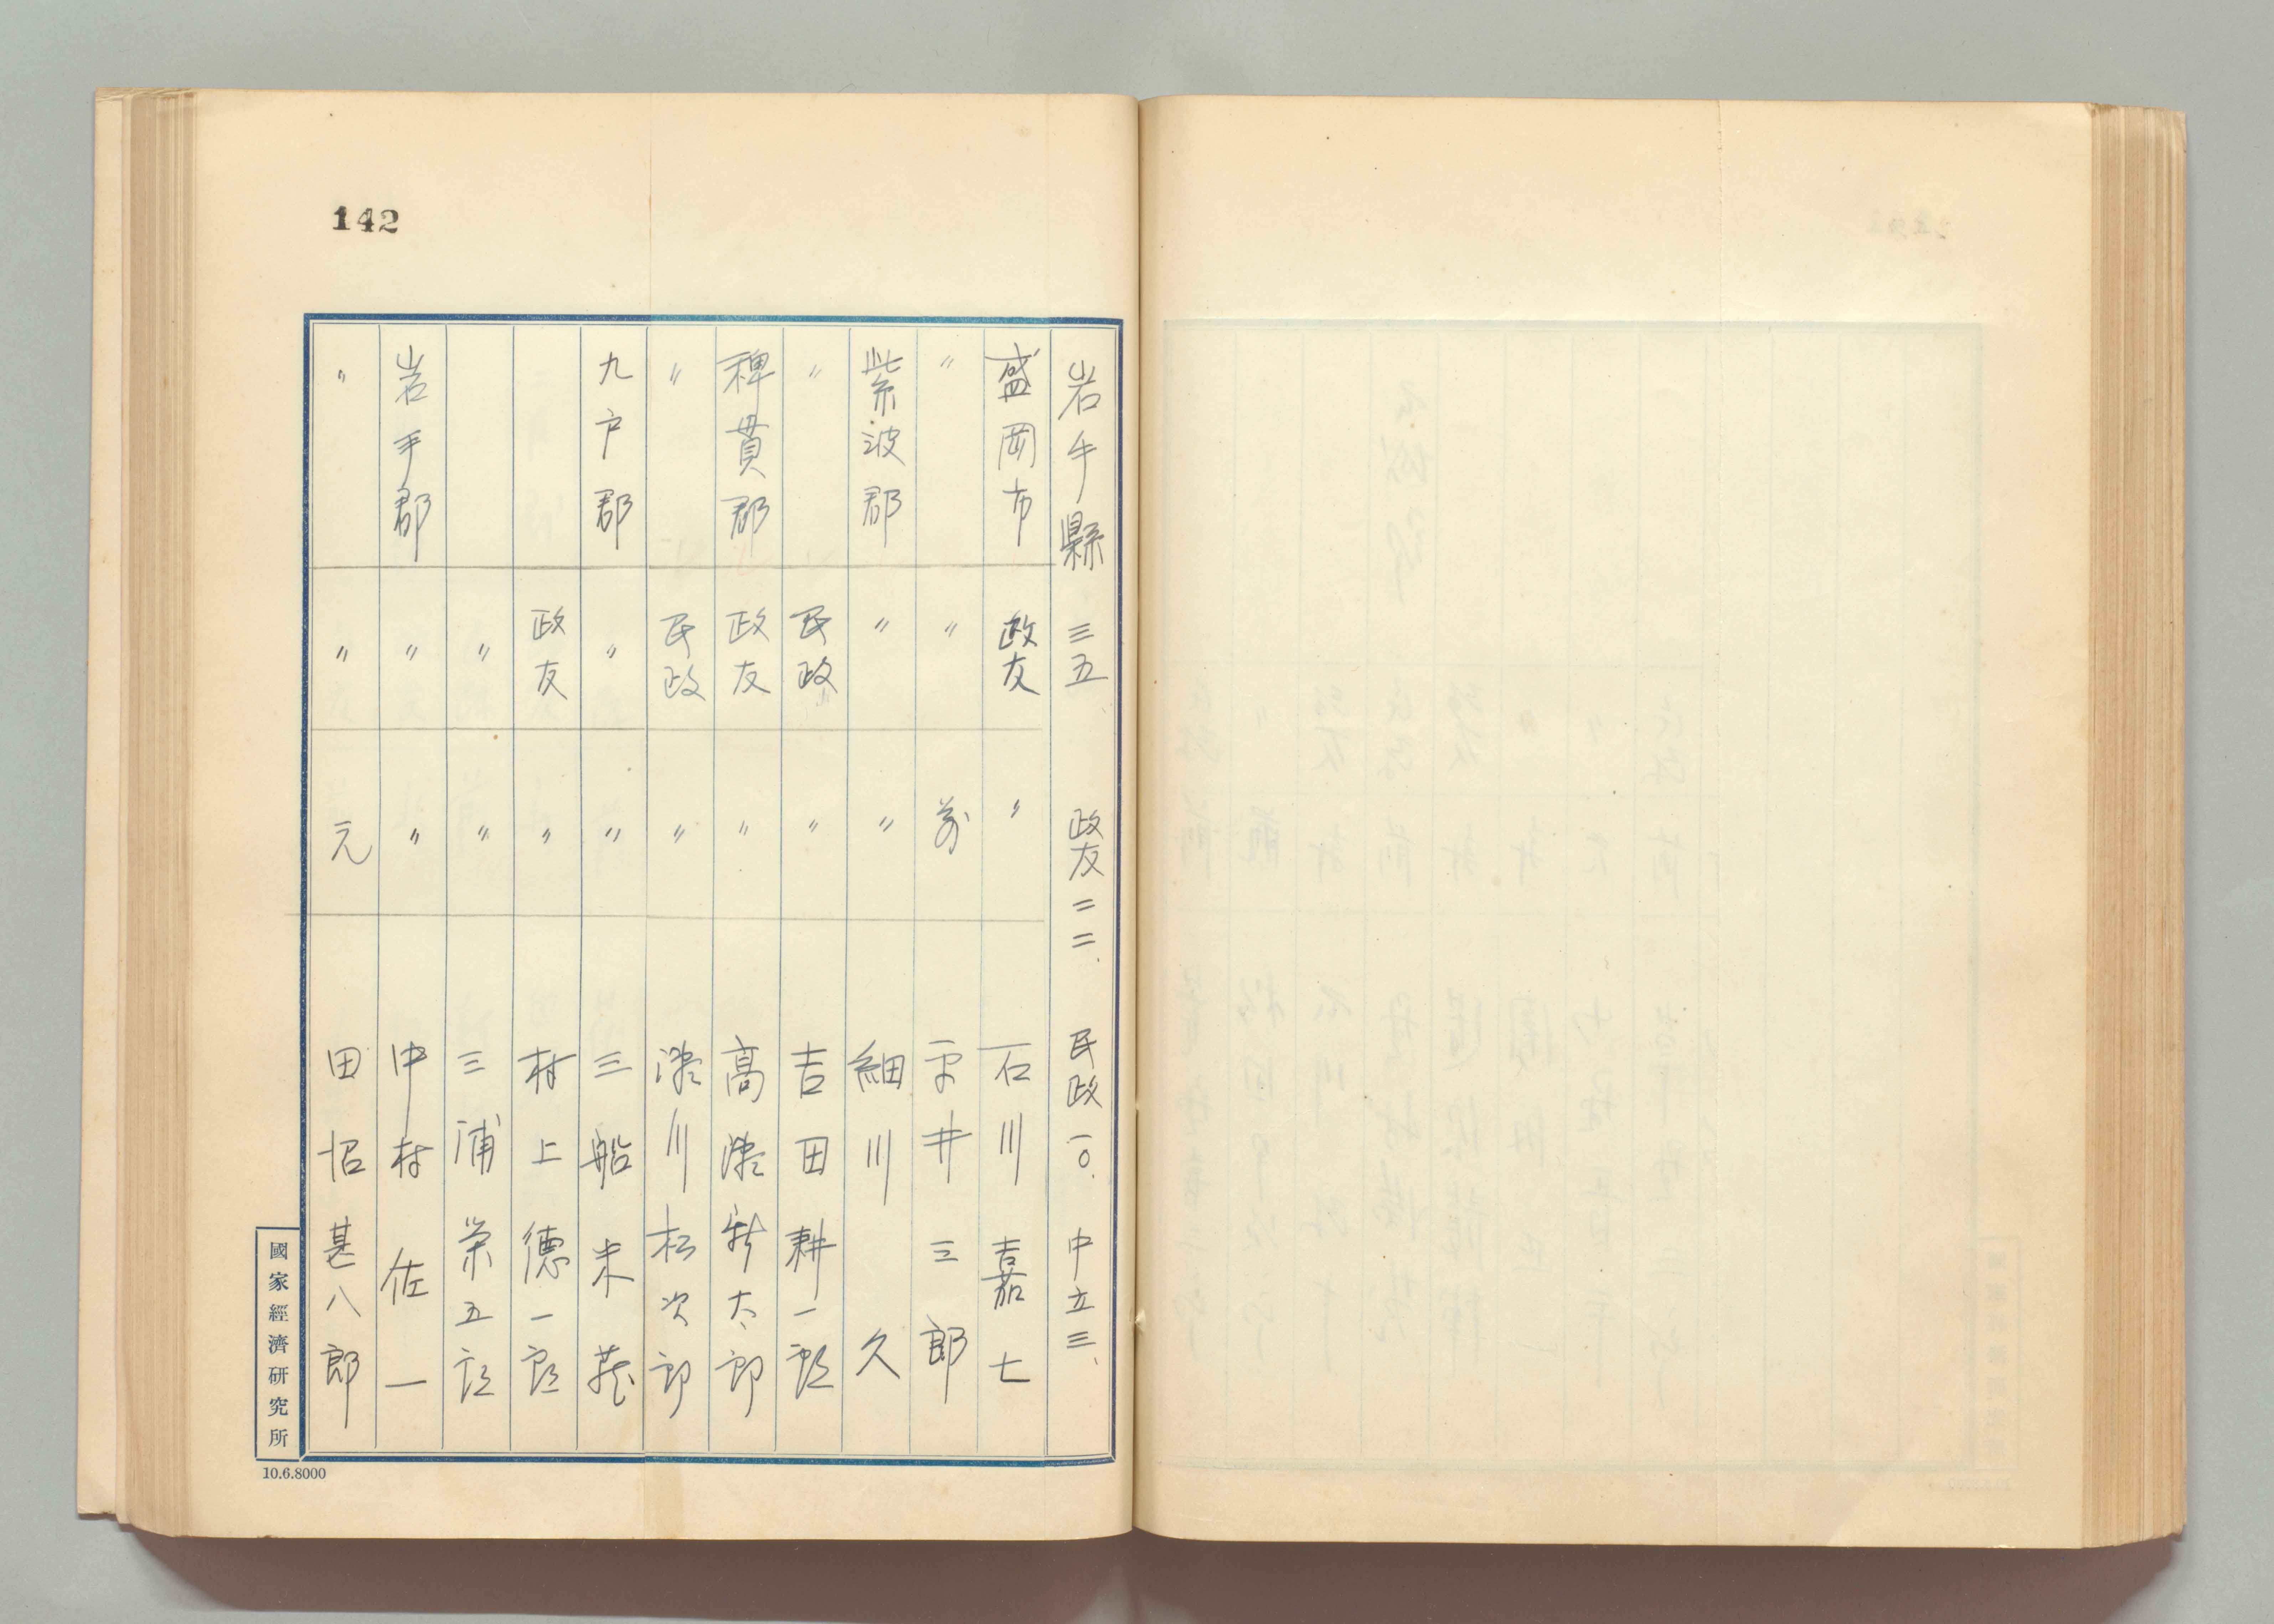 142
岩手縣 三五、 政友二二、 民政一〇、 中立三、
盛岡市 政友 〃 石川嘉七
〃 〃 前 平井三郎
紫波郡 〃 〃 細川久
〃 民政 〃 吉田耕一郎
稗貫郡 政友 〃 高瀬新太郎
〃 民政 〃 瀬川松次郎
九戸郡 〃 〃 三船末蔵
政友 〃 村上徳一郎
〃 〃 三浦栄五郎
岩手郡 〃 〃 中村佐一
〃 〃 元 田沼甚八郎
國家經濟研究所
10.6.8000